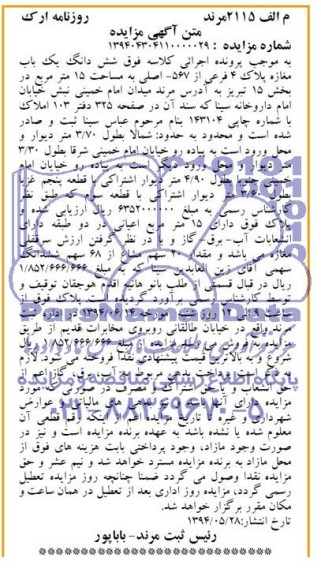 م الف ۲۱۱۵مرند روزنامه ارک
متن آگهی مزایده
شماره مزایده : ۱۳۹۴۰۴۳۰۴۱۱۰۰۰۰۰۲۹
به موجب پرونده اجرائی کلاسه فوق شش دانگ یک باب
مغازه پلاک ۴ فرعی از ۵۶۷- اصلی به مساحت ۱۵ متر مربع در
بخش ۱۵ تبریز به آدرس مرند میدان امام خمینی نبش خیابان
امام داروخانه سینا که سند آن در صفحه ۳۲۵ دفتر ۱۰۳ املاک
با شماره چاپی ۱۴۳۱۰۴ بنام مرحوم عباس سینا ثبت و صادر
شده است و محدود به حدود: شمالا بطول ۳/۷۰ متر دیوار و
محل ورود است به پیاده رو خیابان امام خمینی شرقا بطول ۳/۳۰
متر دیوار و محل ورود است به پیاده رو خیابان امام
خمینی جنوبا بطول ۴/۹۰ متر دیوار اشتراکی با قطعه پنجم غربا
بطول دیوار اشتراکی با قطعه سوم که طبق نظر
کارشناس رسمی به مبلغ ۶۳۵۲۰۰۰۰۰۰ ریال ارزیابی شده و
پلاک فوق دارای ۱۵ متر مربع اعیانی در دو طبقه دارای
انشعابات آب- برق گاز و با در نظر گرفتن ارزش سرقفلی
مغازه می باشد و مقدار ۲۰ سهم مشاع از ۶۸ سهم ششدانگ
سهمی آقای زین العابدین سینا که به مبلغ ۱/۸۵۲/۶۶۶/۶۶۶
ریال در قبال قسمتی از طلب بانو هانیه اقدم هوجقان توقیف و
توسط کارشناس رسمی برآورد گردیده است. پلاک فوق از
ساعت ۹ الی ۱۲ روز شنبه مورخه ۱۳۹۴/۰۶/۱۴ در اداره ثبت
مرند واقع در خیابان طالقانی روبروی مخابرات قدیم از طریق
مزایده به فروش می رسد. مزایده از مبلغ ۱/۸۵۲/۶۶۶/۶۶۶ ریال
شروع و به بالاترین قیمت پیشنهادی نقدا فروخته می شود. لازم
به ذکر است پرداخت بدهی مربوط به آب، برق، گاز اعم از
حق انشعاب و یا حق اشتراک و مصرف در صورتی که مورد
مزایده دارای آنها باشد و نیز بدهی های مالیاتی و عوارض
شهرداری و غیره تا تاریخ مزایده اعم از اینکه رقم قطعی آن
معلوم شده یا نشده باشد به عهده برنده مزایده است و نیز در
صورت وجود مازاد، وجوه پرداختی بابت هزینه های فوق از
محل مازاد به برنده مزایده مسترد خواهد شد و نیم عشر و حق
مزایده نقدا وصول می گردد ضمنا چنانچه روز مزایده تعطیل
رسمی گردد، مزایده روز اداری بعد از تعطیل در همان ساعت و
مکان مقرر برگزار خواهد شد.
تاریخ انتشار: ۱۳۹۴/۰۵/۲۸
رئیس ثبت مرند- باباپور
پایگاه اطلاع رسانی مناقصه و مزایده
۰۲۱-۸۸۳۴۹۶۷۰-۵